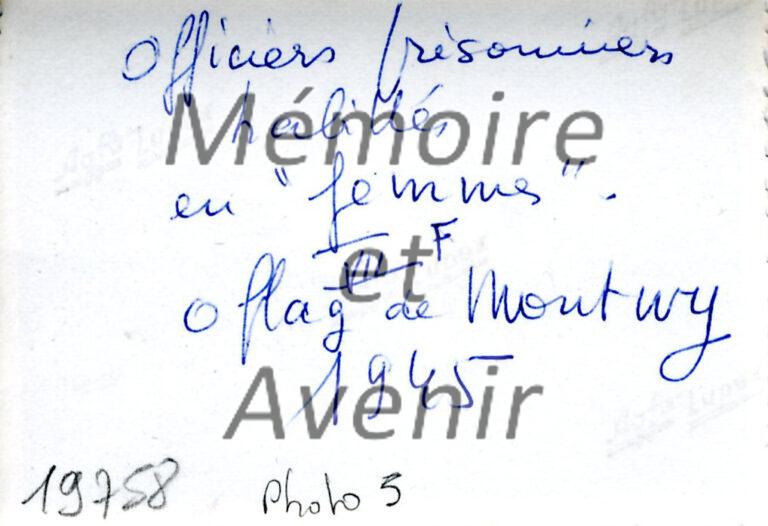 Officiers prisonniers
Mémoire
habillés
en "femmes".
F
et
Oflag de Montwy
1945
Avenir
19758 Photo 5